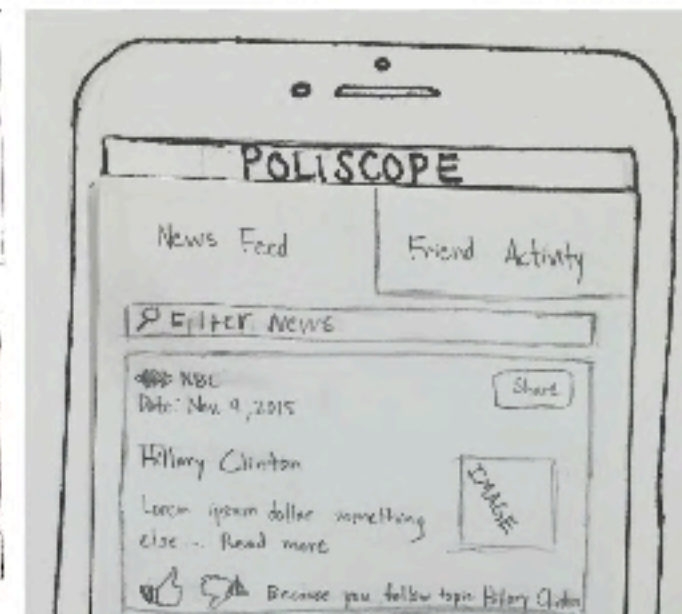 POLISCOPE
News Feed
Friend Activity
Filter News
NBC
Date: Nov. 9, 2015
Share
Hillary Clinton
IMAGE
Lorem ipsum dollar something
else ... Read more
Because you follow topic Hillary Clinton